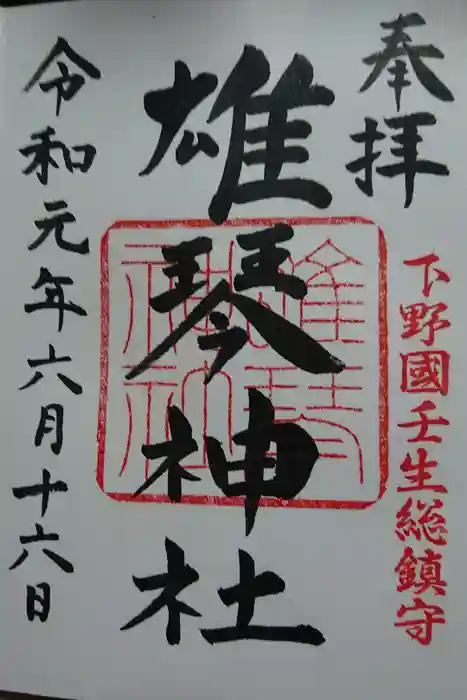 奉拝
下野國壬生総鎮守
雄琴神社
令和元年六月十六日